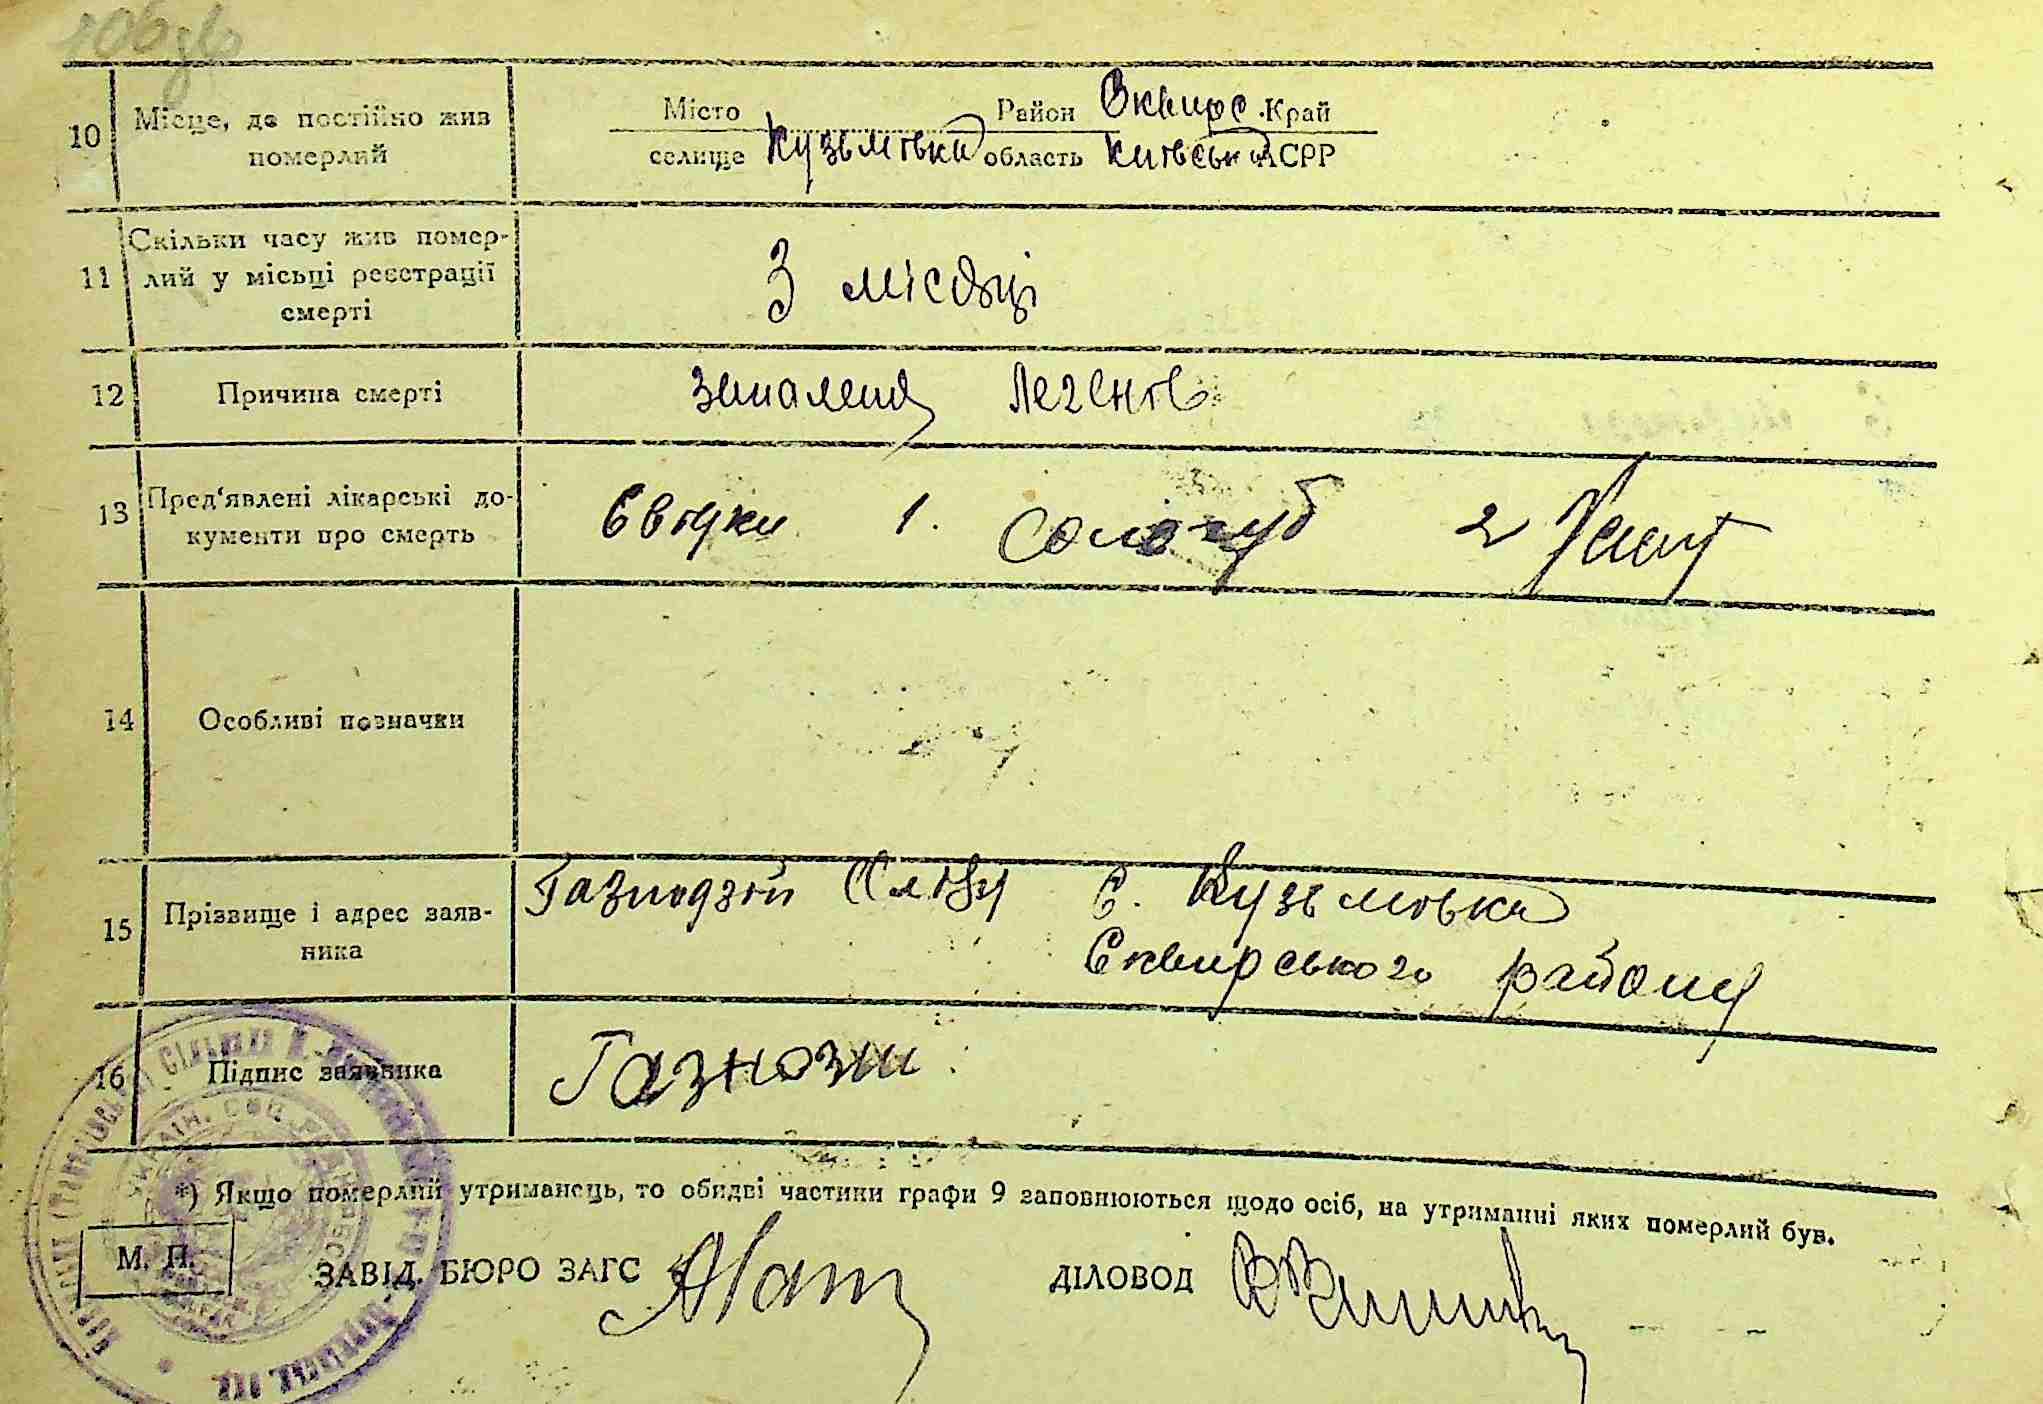 106 зв
10 Місце, де постійно жив померлий
Місто Район Сквирс. Край
селище Кузьмівка область Київська АСРР
11 Скільки часу жив помер-
лий у місці реєстрації
смерті
3 місяці
12 Причина смерті
запалення легенів
13 Пред'явлені лікарські до-
кументи про смерть
Свідки 1. Сологуб 2
14 Особливі позначки
15 Прізвище і адрес заяв-
ника
С. Кузьмівка
Сквирського району
16 Підпис заявника
*) Якщо померлий утриманець, то обидві частини графи 9 заповнюються щодо осіб, на утриманні яких померлий був.
М. П.
ЗАВІД. БЮРО ЗАГС
ДІЛОВОД